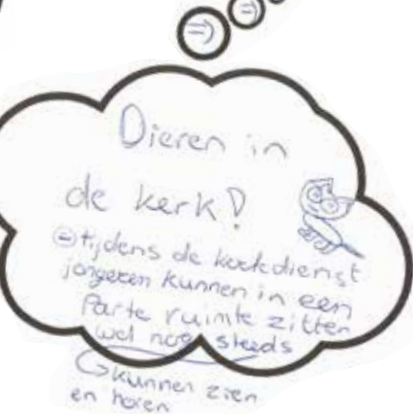 =)
=)
Dieren in
de kerk!
=) tijdens de kerkdienst
jongeren kunnen in een
Parte ruimte zitten
wel nog steeds
kunnen zien
en horen